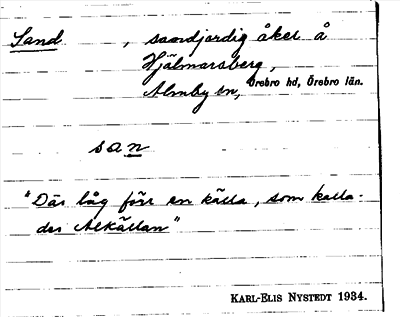 Sand , sandjordig åker å
Hjälmarsberg,
Almby sn, Örebro hd, Örebro län.
san
"Där låg förr en källa, som kalla-
des Alkällan"
KARL-ELIS NYSTEDT 1934.